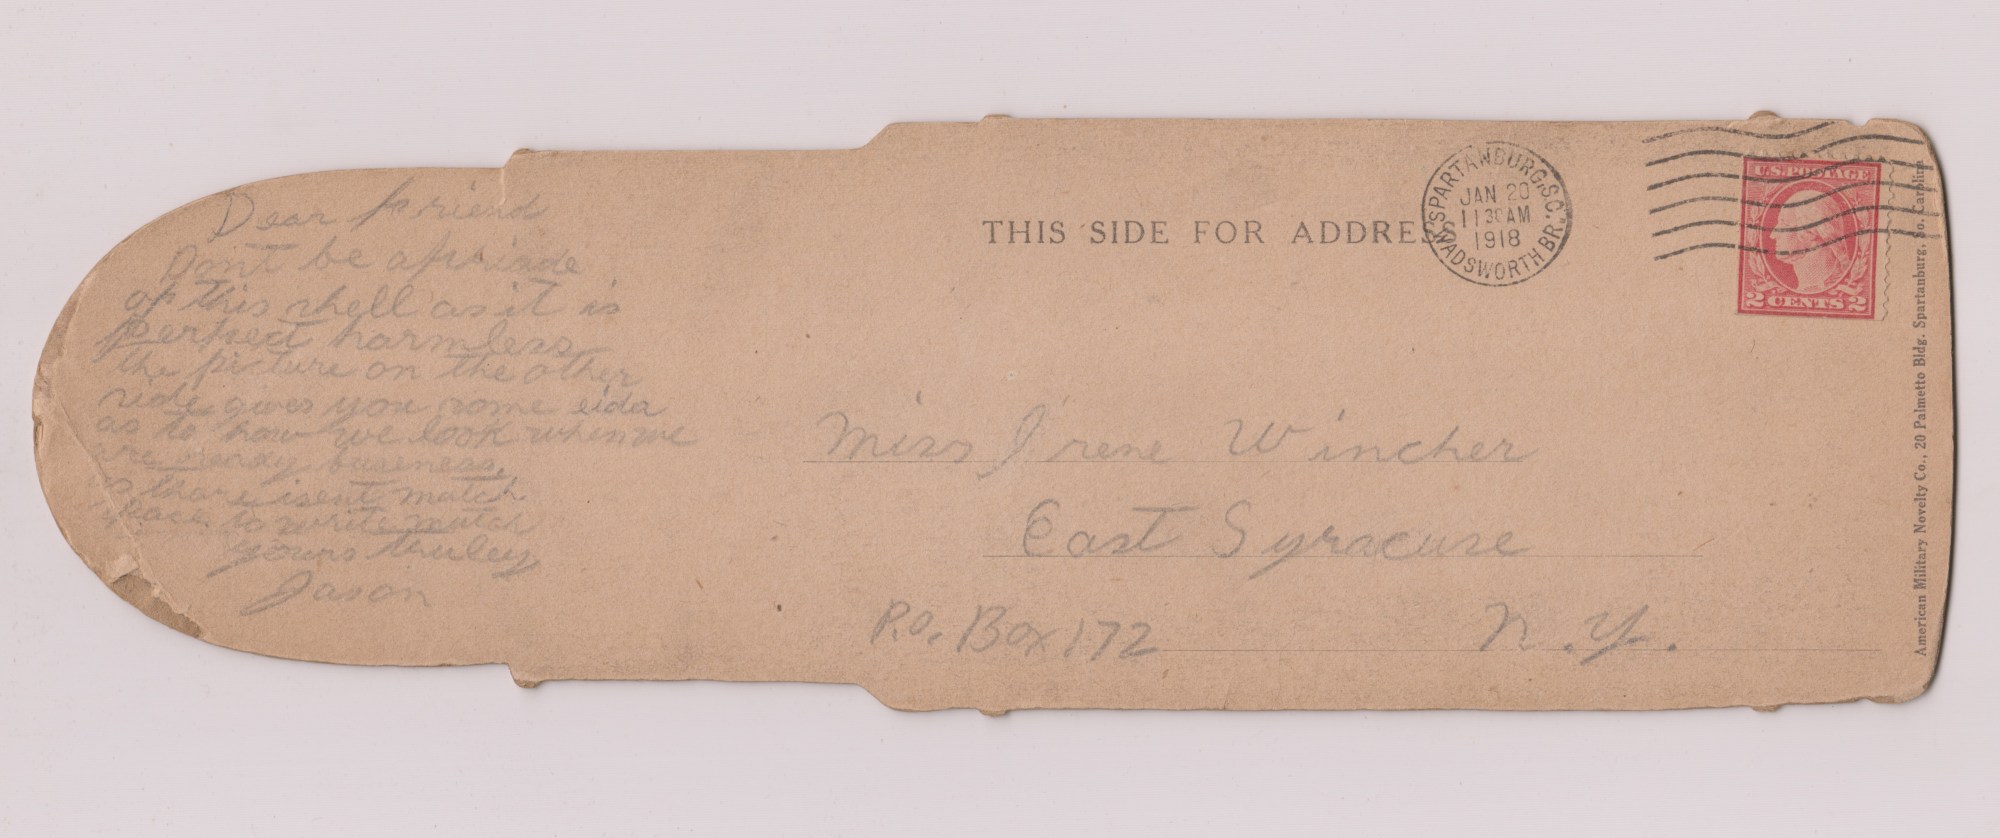 Dear Friend
Dont be afriade
of this shell as it is
perfect harmless
the picture on the other
side gives you some eida
as to how we look when we
are ready buseness,
as thare isent match
space to write mutch
yours truley
Jason
THIS SIDE FOR ADDRESS
SPARTANBURG, S.C.
JAN 20
11 30 AM
1918
WADSWORTH BR.
U.S. POSTAGE
2 CENTS 2
Miss Irene Wincher
East Syracuse
P.O. Box 172 N.Y.
American Military Novelty Co., 20 Palmetto Bldg. Spartanburg, So. Carolina